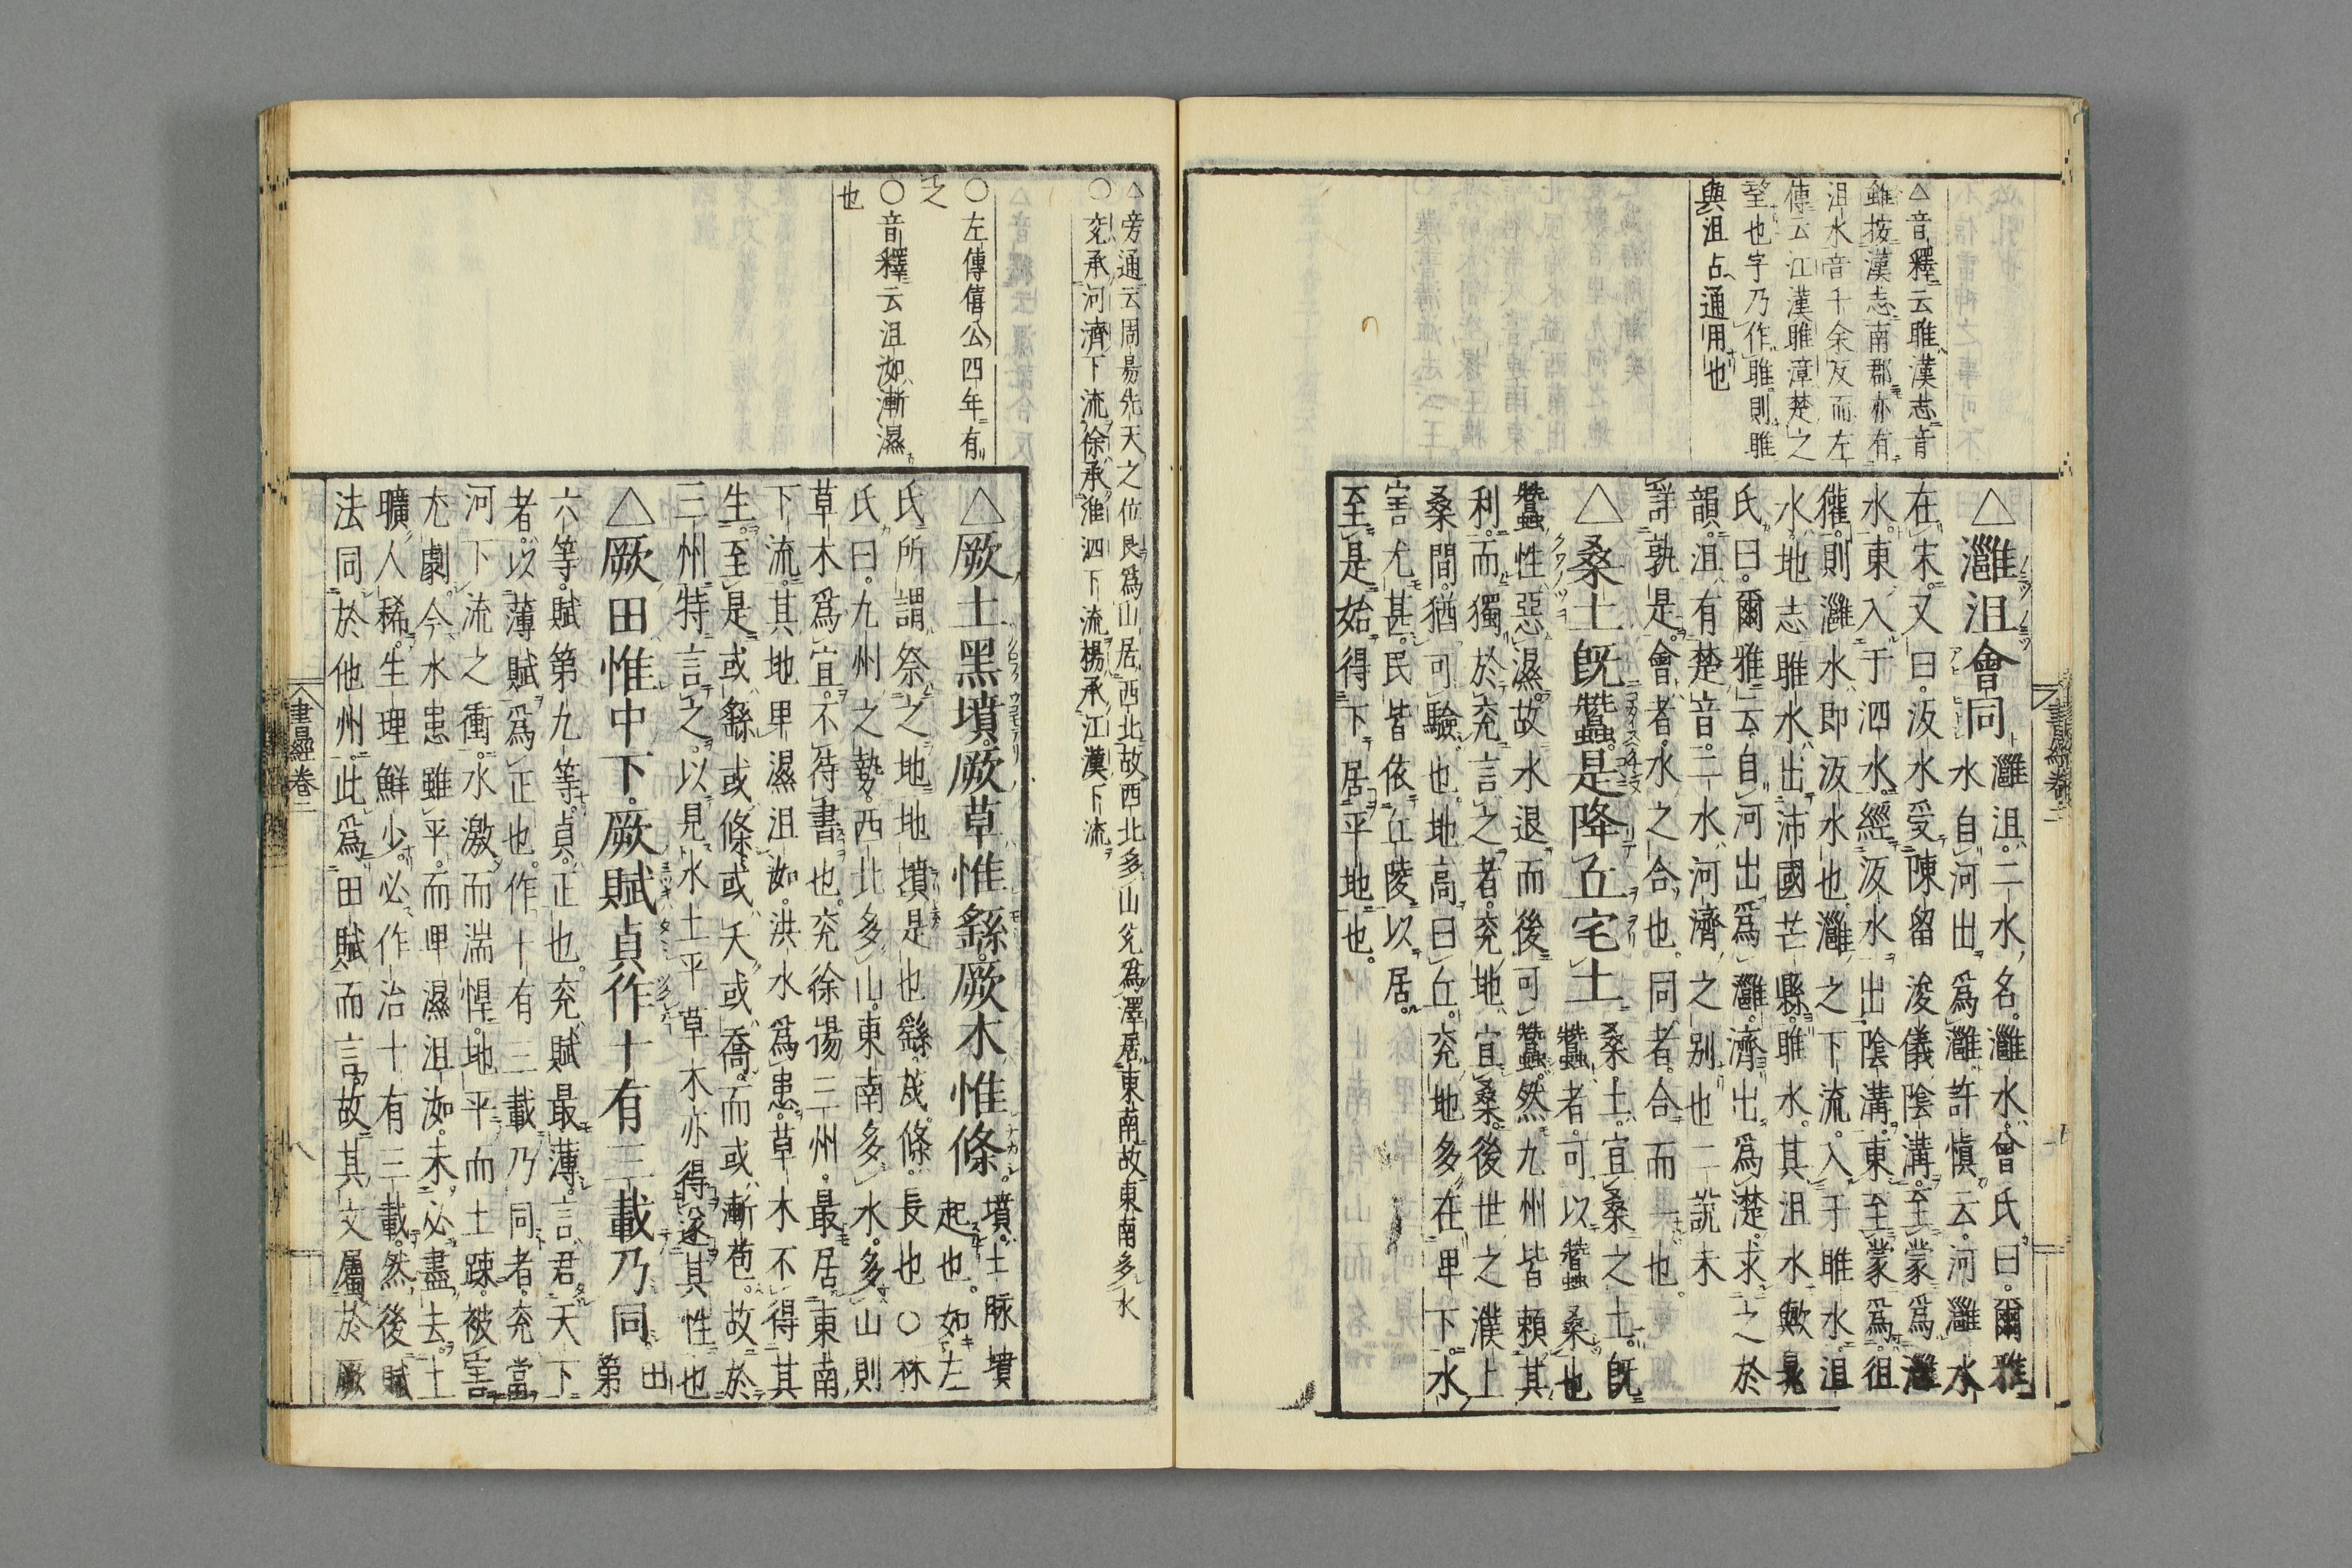 △音釋云雎漢志音
雖按漢志南郡亦有
沮水音千余反而左
傳云江漢雎漳楚之
望也字乃作雎則雎
與沮占通用也
△灉沮會同
灉沮二水名灉水曾氏曰爾雅
水自河出爲灉許愼云河灉水
在宋又曰汳水受陳留浚儀陰溝至蒙爲灉
水東入于泗水經汳水出陰溝東至蒙爲狙
獾則灉水即汳水也灉之下流入于雎水沮
水地志雎水出沛國芒縣雎水其沮水歟晁
氏曰爾雅云自河出爲灉濟出爲濋求之於
韻沮有楚音二水河濟之别也二説未
詳孰是會者水之合也同者合而一也
△桑土旣蠶是降丘宅土
桑土宜桑之土旣
蠶者可以蠶桑也
蠶性惡濕故水退而後可蠶然九州皆賴其
利而獨於兖言之者兖地宜桑後世之濮上
桑間猶可驗也地高曰丘兖地多在卑下水
害尤甚民皆依丘陵以居
至是始得下居平地也
書經卷二
△旁通云周易先天之位艮爲山居西北故西北多山兊爲澤居東南故東南多水
○兖承河濟下流徐承淮泗下流揚承江漢下流
○左傳僖公四年有
之
○音釋云沮洳漸濕
也
△厥土黑墳厥草惟繇厥木惟條
墳土脉墳
起也如左
氏所謂祭之地地墳是也繇茂條長也○林
氏曰九州之勢西北多山東南多水多山則
草木爲宜不待書也兖徐揚三州最居東南
下流其地卑濕沮洳洪水爲患草木不得其
生至是或繇或條或夭或喬而或漸苞故於
三州特言之以見水土平草木亦得遂其性也
△厥田惟中下厥賦貞作十有三載乃同
田
第
六等賦第九等貞正也兖賦最薄言君天下
者以薄賦爲正也作十有三載乃同者兖當
河下流之衝水激而湍悍地平而土踈被害
尤劇今水患雖平而卑濕沮洳未必盡去土
曠人稀生理鮮少必作治十有三載然後賦
法同於他州此爲田賦而言故其文屬於厥
書經卷二
八